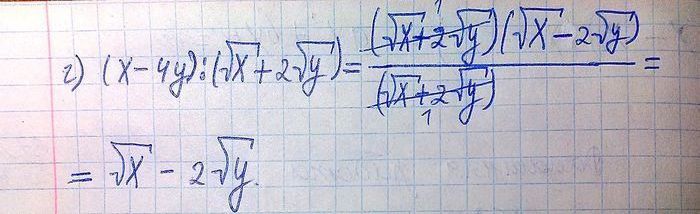 г) (x-4y):(√x+2√y)=(√x+2√y)(√x-2√y)/(√x+2√y)=
=√x-2√y.